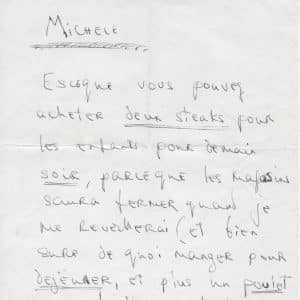 MICHELE
Esceque vous pouvez
acheter deux steaks pour
les enfants pour demain
soir, parceque les magasins
saura fermer quand je
me reveillerai (et bien
sure de quoi manger pour
dejeuner, et plus un poulet